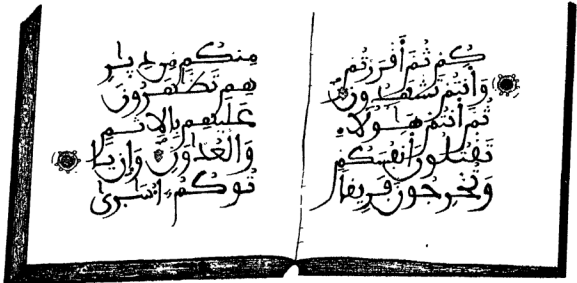 كُمْ ثُمَّ أَقْرَرْتُمْ
وَأَنْتُمْ تَشْهَدُونَ
ثُمَّ أَنْتُمْ هَؤُلَاءِ
تَقْتُلُونَ أَنْفُسَكُمْ
وَتُخْرِجُونَ فَرِيقًا
مِنْكُمْ مِنْ دِيَارِ
هِمْ تَظَّهَرُونَ
عَلَيْهِمْ بِالْإِثْمِ
وَالْعُدْوَانِ وَإِنْ يَا
تُوكُمْ أُسَرَى